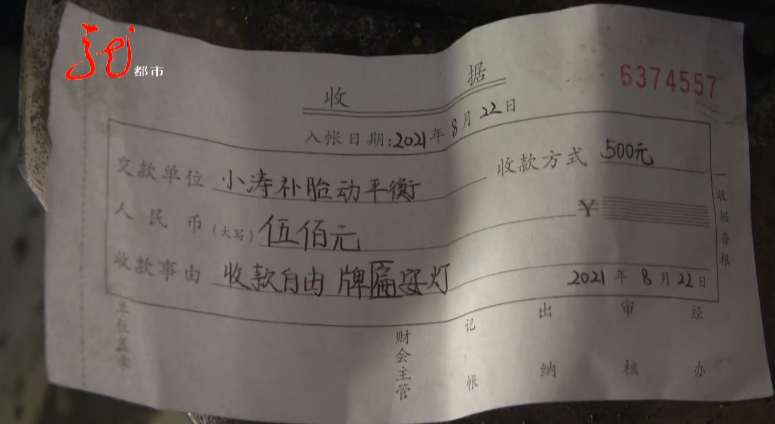 都市
6374557
收 据
入帐日期:2021年8月22日
交款单位 小涛补胎动平衡 收款方式 500元
人民币(大写) 伍佰元 ¥
收款事由 收款自由 牌匾安灯 2021年8月22日
一收据存根
单位盖章 财会主管 记帐 出纳 审核 经办